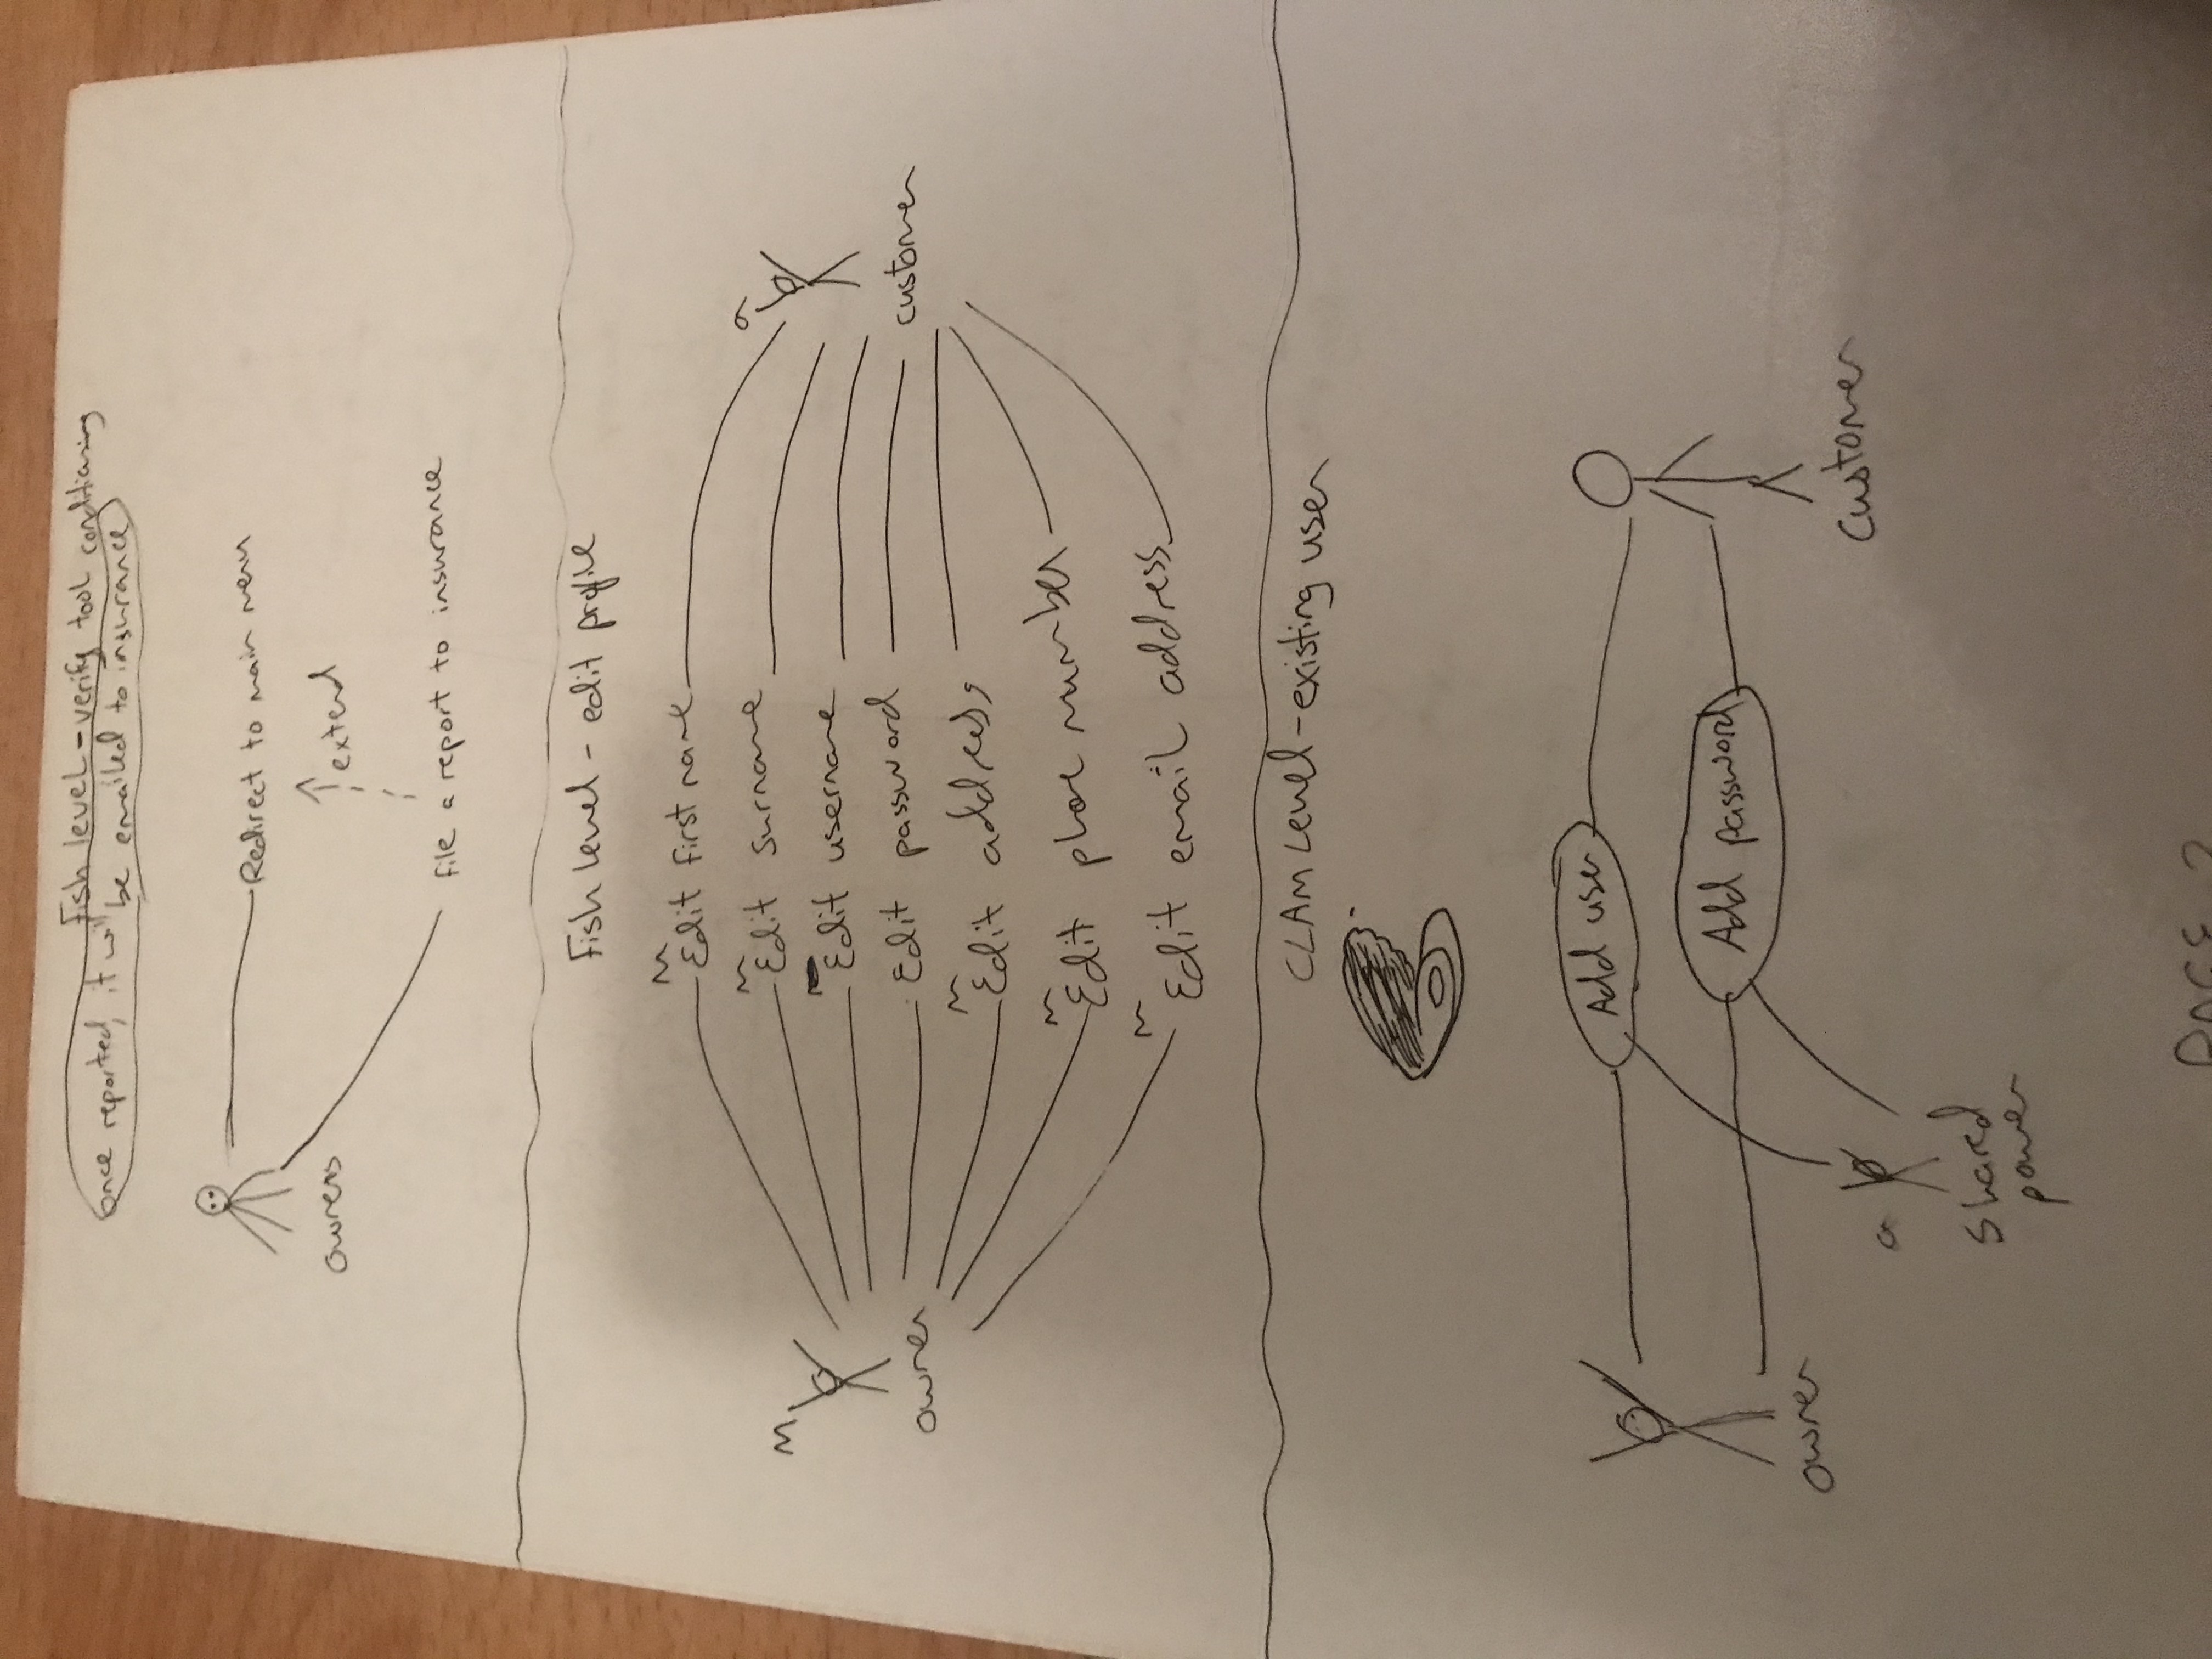 Fish level - verify tool conditioning
once reported, it will be emailed to insurance
Redirect to main menu
owners
extend
file a report to insurance
Fish level - edit profile
m
Edit first name
m
Edit surname
a
m
Edit username
Edit password
customer
owner
m
Edit address
m
Edit phone number
m
Edit email address
CLAM Level - existing user
Add user
Add password
owner
customer
a
Shared
power
PAGE 2